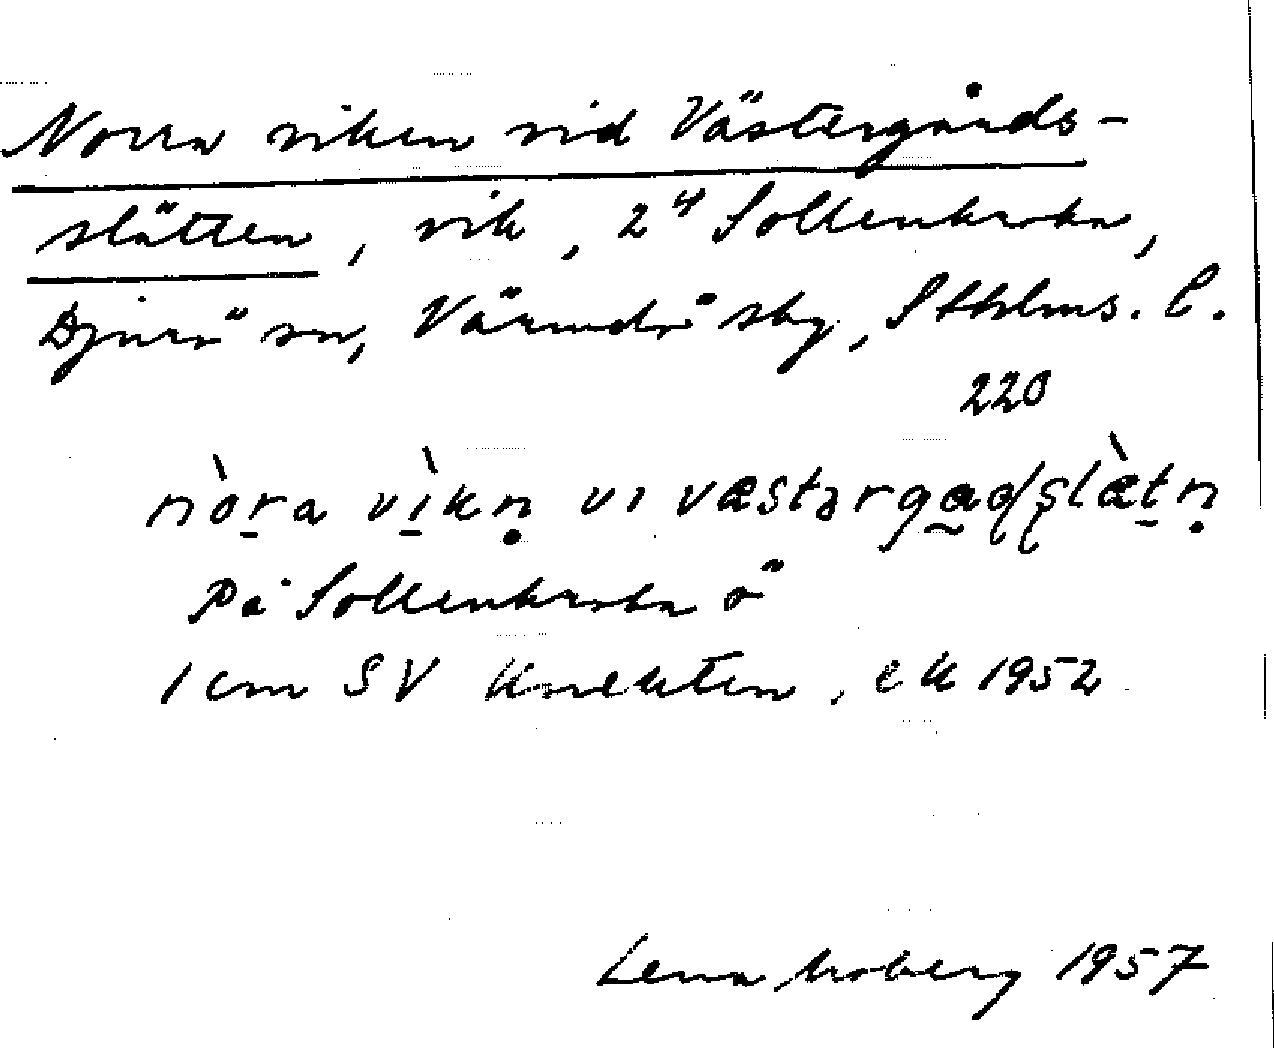 Norra viken vid Västergårds-
slätten, vik, 2⁴ Sollenkroka,
Djurö sn, Värmdö sbg, Sthlms. l.
220
nòra vìkn̥ vi væstərgaḍṣlætn̥
På Sollenkroka ö
1 cm SV Knekten, ek 1952
Lena Moberg 1957